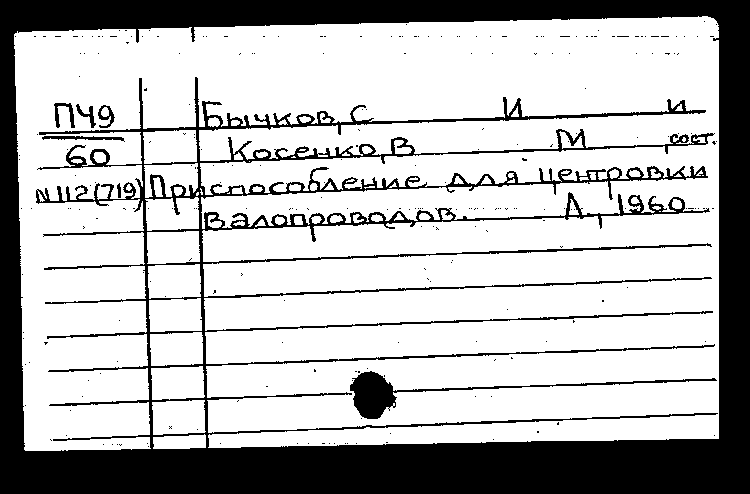 П49 Бычков, С И и
60 Косенко, В М , сост.
N112(719) Приспособление для центровки
валопроводов. Л., 1960